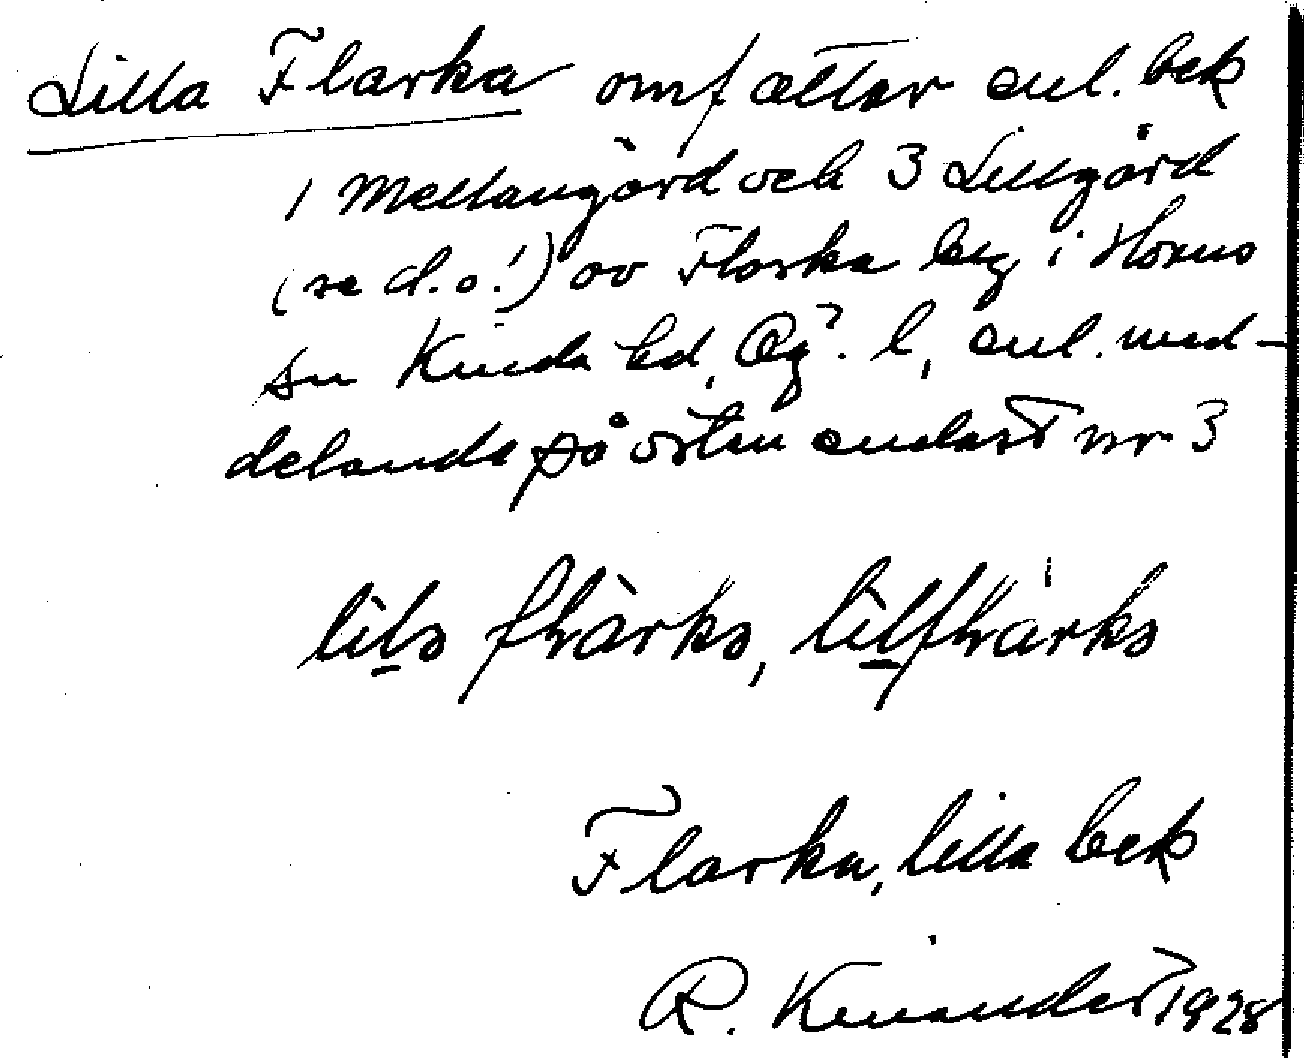 Lilla Flarka omfattar enl. bek
1 Mellangård och 3 Lillgård
(se d.o!) av Flarka by i Horns
sn Kinda hd, Ög. l, enl. med-
delande på orten endast nr 3
lila flàrka, lìlflàrka
Flarka, lilla bek
R. Kinander 1928